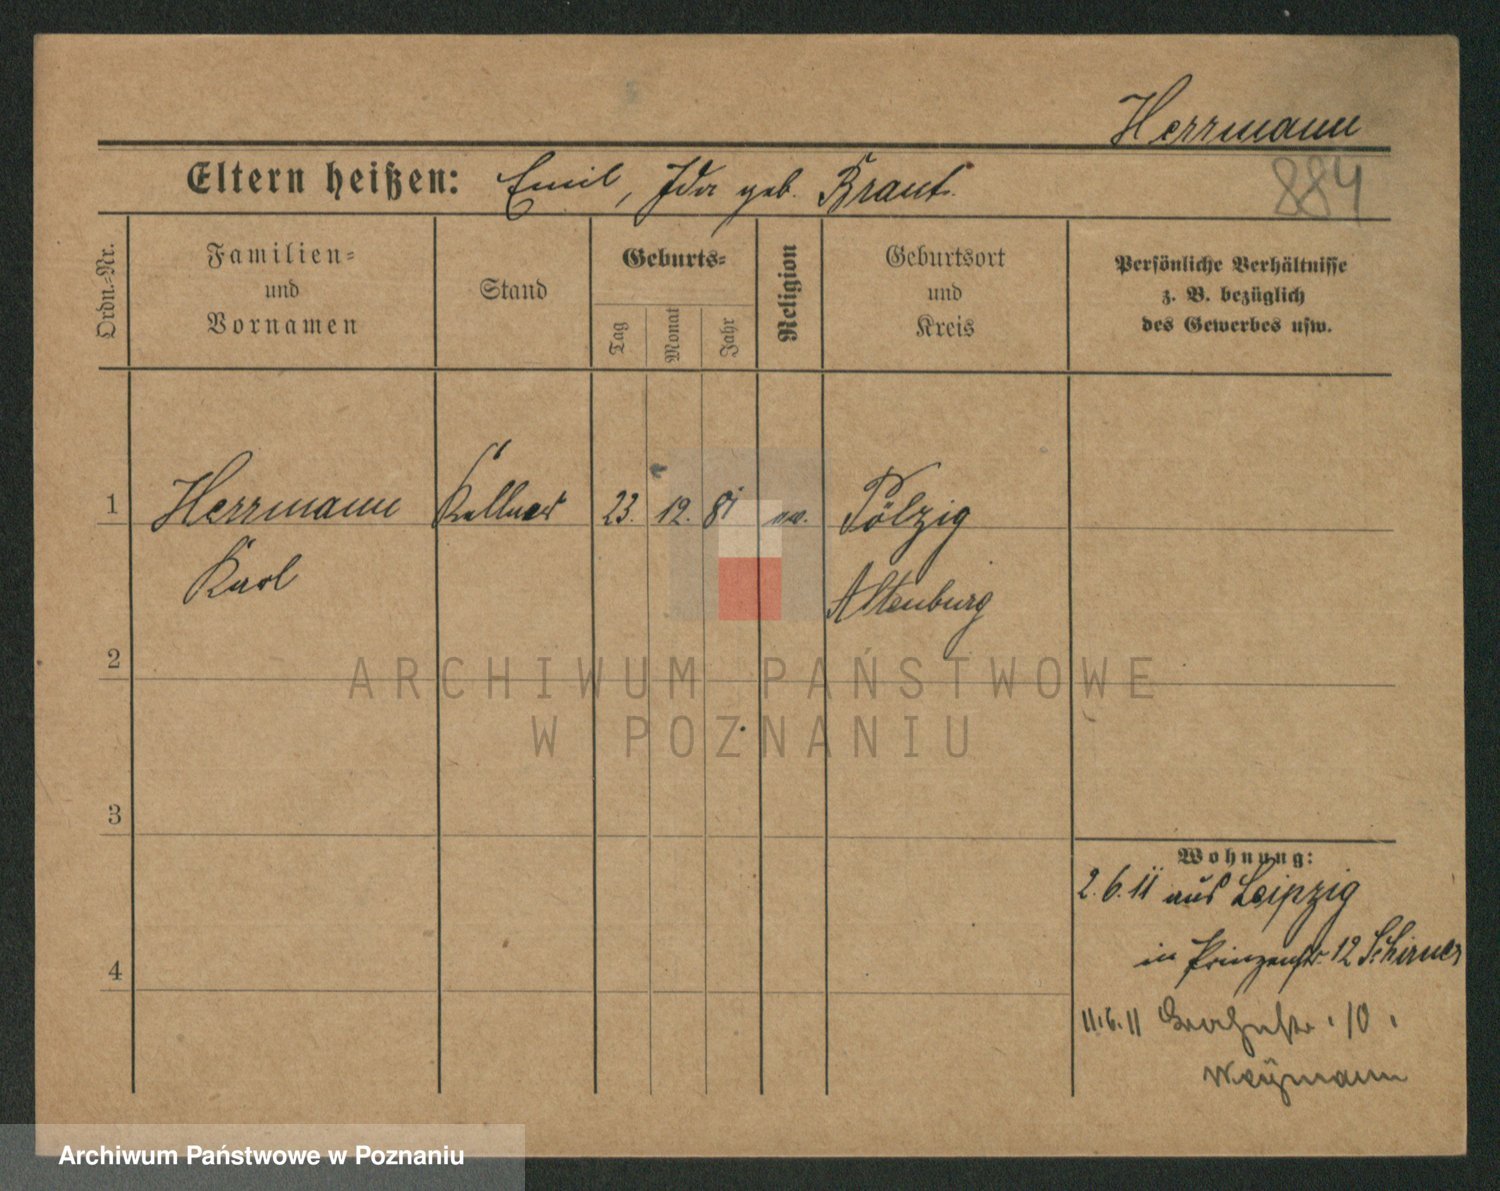 Herrmann
884
Eltern heißen: Emil, Ida geb. Braut.
Ordn.-Nr.
Familien-
und
Vornamen
Stand
Geburts-
Tag
Monat
Jahr
Religion
Geburtsort
und
Kreis
Persönliche Verhältnisse
z. B. bezüglich
des Gewerbes usw.
1 Herrmann Kellner 23. 12. 81 ev. Pölzig
Karl Altenburg
2
ARCHIWUM PAŃSTWOWE
W POZNANIU
3
Wohnung:
2.6.11 aus Leipzig
in Prinzenstr. 12 Schirmer
4
11.6.11 10.
Weymann
Archiwum Państwowe w Poznaniu